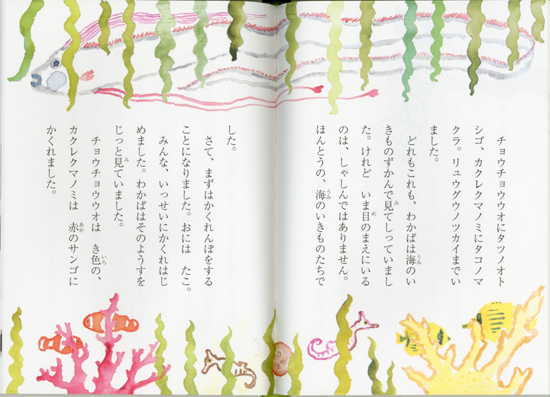 チョウチョウウオにタツノオト
シゴ、カクレクマノミにタコノマ
クラ。リュウグウノツカイまでい
ました。
どれもこれも、わかばは海のい
きものずかんで見てしっていまし
た。けれど　いま目のまえにいる
のは、しゃしんではありません。
ほんとうの、海のいきものたちで
した。
さて、まずはかくれんぼをする
ことになりました。おには　たこ。
みんな、いっせいにかくれはじ
めました。わかばはそのようすを
じっと見ていました。
チョウチョウウオは　き色の、
カクレクマノミは　赤のサンゴに
かくれました。